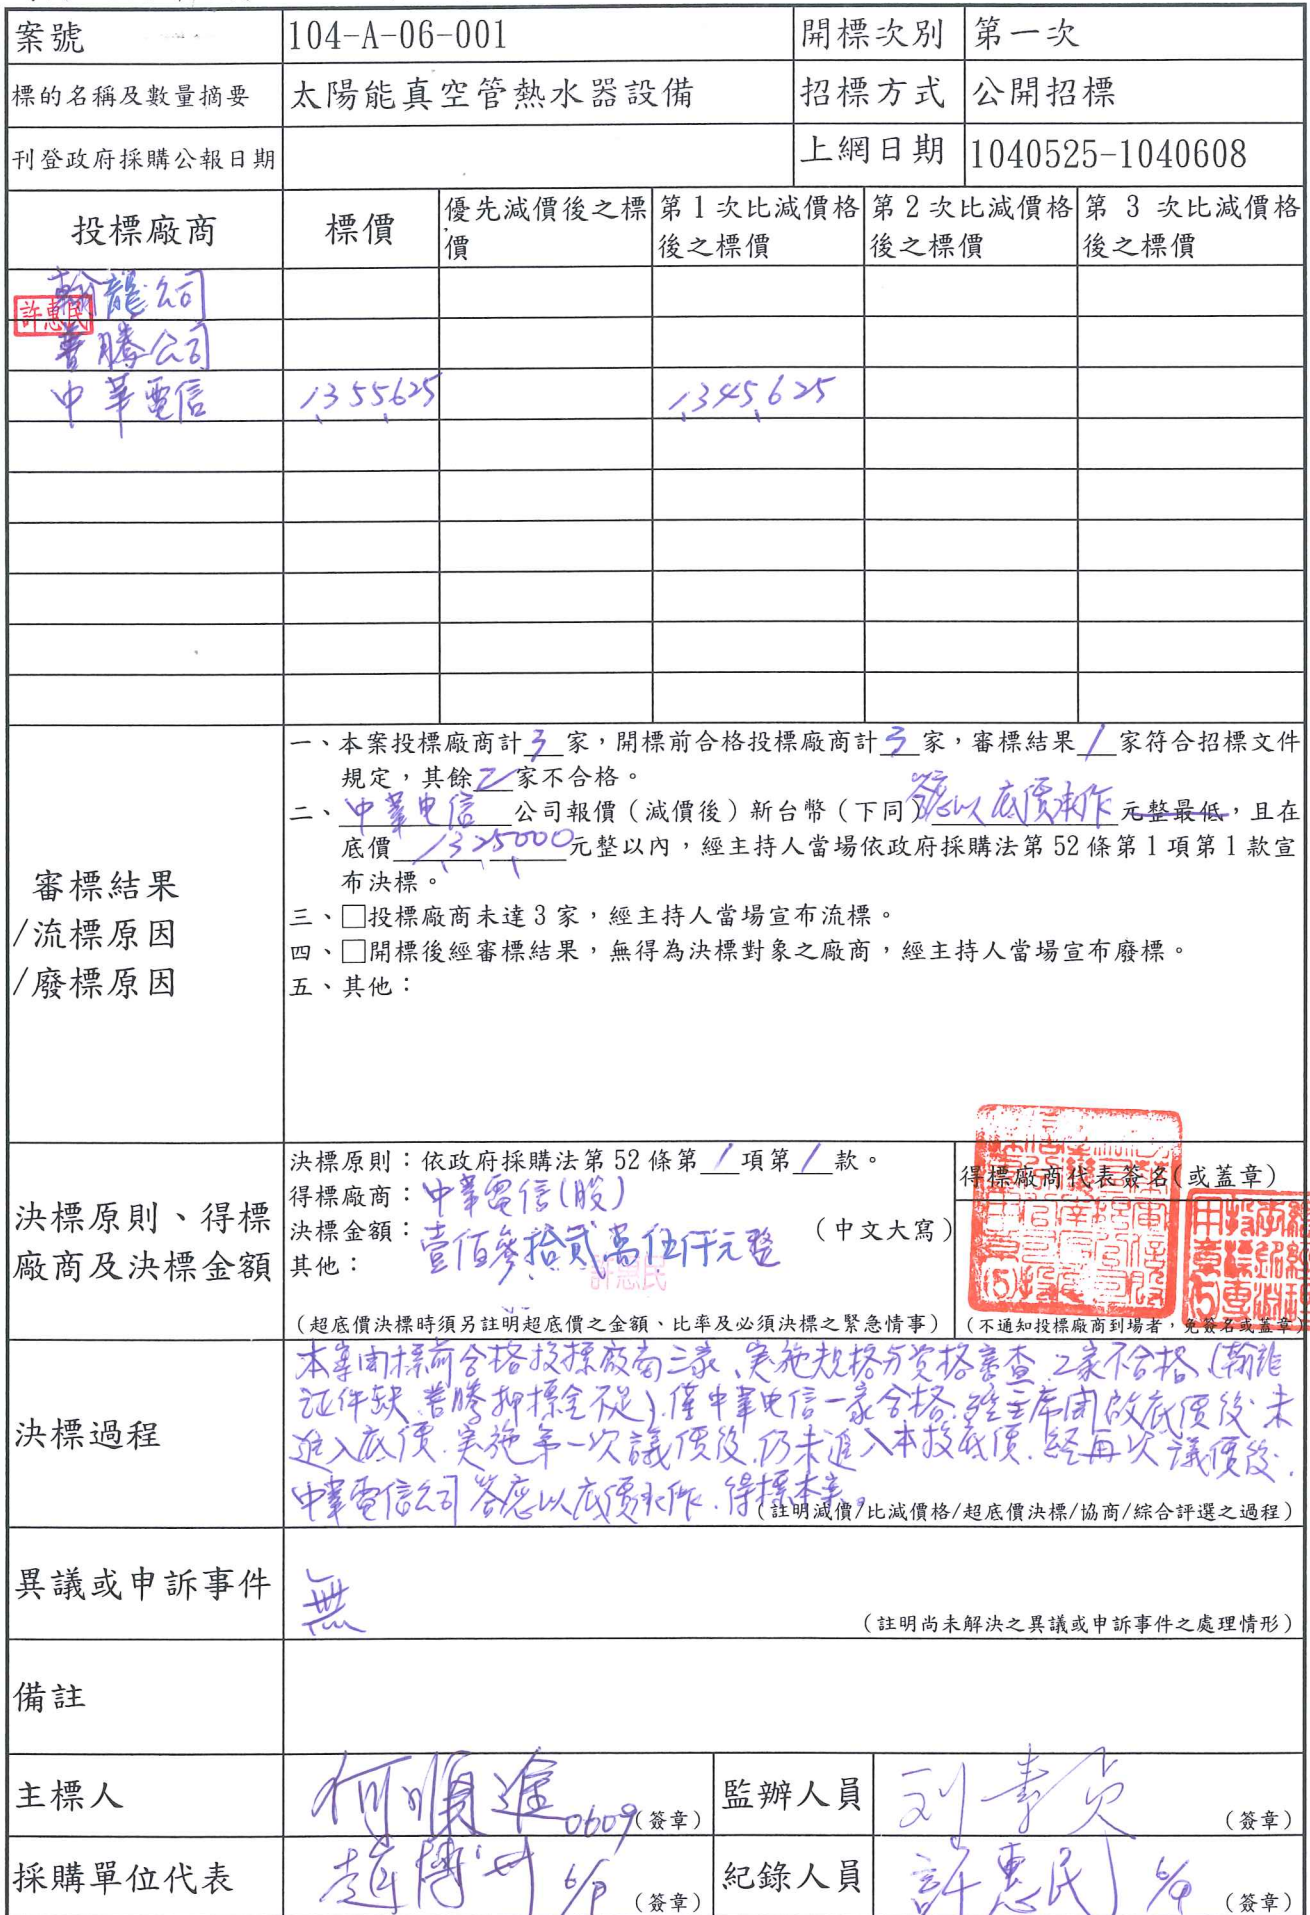 案號 104-A-06-001 開標次別 第一次
標的名稱及數量摘要 太陽能真空管熱水器設備 招標方式 公開招標
刊登政府採購公報日期 上網日期 1040525-1040608
投標廠商 標價 優先減價後之標價 第1次比減價格後之標價 第2次比減價格後之標價 第3次比減價格後之標價
翰龍公司
許惠民
普騰公司
中華電信 1,355,625 1,345,625
審標結果
/流標原因
/廢標原因
一、本案投標廠商計3家,開標前合格投標廠商計3家,審標結果1家符合招標文件
規定,其餘2家不合格。
二、中華電信公司報價(減價後)新台幣(下同)答應以底價承作元整最低,且在
底價1,325,000元整以內,經主持人當場依政府採購法第52條第1項第1款宣
布決標。
三、□投標廠商未達3家,經主持人當場宣布流標。
四、□開標後經審標結果,無得為決標對象之廠商,經主持人當場宣布廢標。
五、其他:
決標原則、得標
廠商及決標金額
決標原則:依政府採購法第52條第1項第1款。
得標廠商:中華電信(股)
決標金額:壹佰參拾貳萬伍仟元整(中文大寫)
其他:
許惠民
(超底價決標時須另註明超底價之金額、比率及必須決標之緊急情事)
得標廠商代表簽名(或蓋章)
(不通知投標廠商到場者,免簽名或蓋章)
決標過程
本案開標前合格投標廠商三家、實施規格与資格審查,2家不合格(翰龍
証件缺,普騰押標金不足),僅中華电信一家合格,經主席開啟底價後,未
進入底價,實施第一次議價後,仍未進入本校底價,經再次議價後,
中華電信公司答應以底價承作,得標本案。
(註明減價/比減價格/超底價決標/協商/綜合評選之過程)
異議或申訴事件 無
(註明尚未解決之異議或申訴事件之處理情形)
備註
主標人 何順進 0609 (簽章) 監辦人員 (簽章)
採購單位代表 (簽章) 紀錄人員 許惠民 6/9 (簽章)